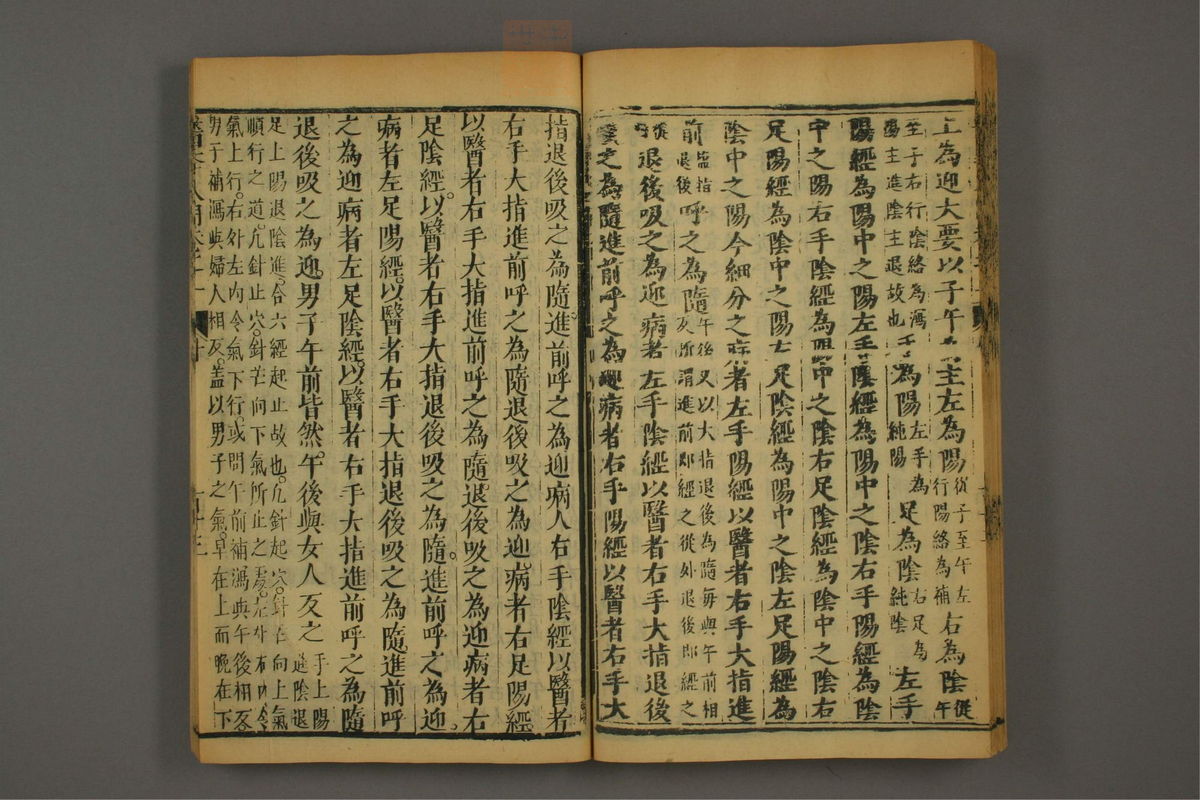 為迎大要以子午為主左為陽從子至午左行陽絡為補右為陰從午
至子右行陰絡為瀉陽主進陰主退故也手為陽左手為純陽足為陰右足為純陰左手
陽經為陽中之陽左手陰經為陽中之陰右手陽經為陰
中之陽右手陰經為陰中之陰右足陰經為陰中之陰右
足陽經為陰中之陽左足陰經為陽中之陰左足陽經為
陰中之陽今細分之病者左手陽經以醫者右手大指進
前鹽指退後呼之為隨午後又以大指退後為隨每與午前相反所謂進前即經之從外退後即經之
從退後吸之為迎病者左手陰經以醫者右手大指退後
之為隨進前呼之為迎病者右手陽經以醫者右手大
指退後吸之為隨。進前呼之為迎病人右手陰經以醫者
右手大指進前呼之為隨退後吸之為迎。病者右足陽經
以醫者右手大指進前呼之為隨退後吸之為迎病者右
足陰經。以醫者右手大指退後吸之為隨。進前呼之為迎。
病者左足陽經。以醫者右手大指退後吸之為隨。進前呼
之為迎病者左足陰經以醫者右手大指進前呼之為隨
退後吸之為迎。男子午前皆然。午後與女人反之手上陽進陰退
足上陽退陰進。合六經起止故也。凡針起穴。針芒向上氣
順行之道。凡針止穴。針芒向下氣所止之處。左外右內令
氣上行。右外左內令氣下行。或問午前補瀉與午後相反
男子補瀉與婦人相反。蓋以男子之氣。早在上而晚在下